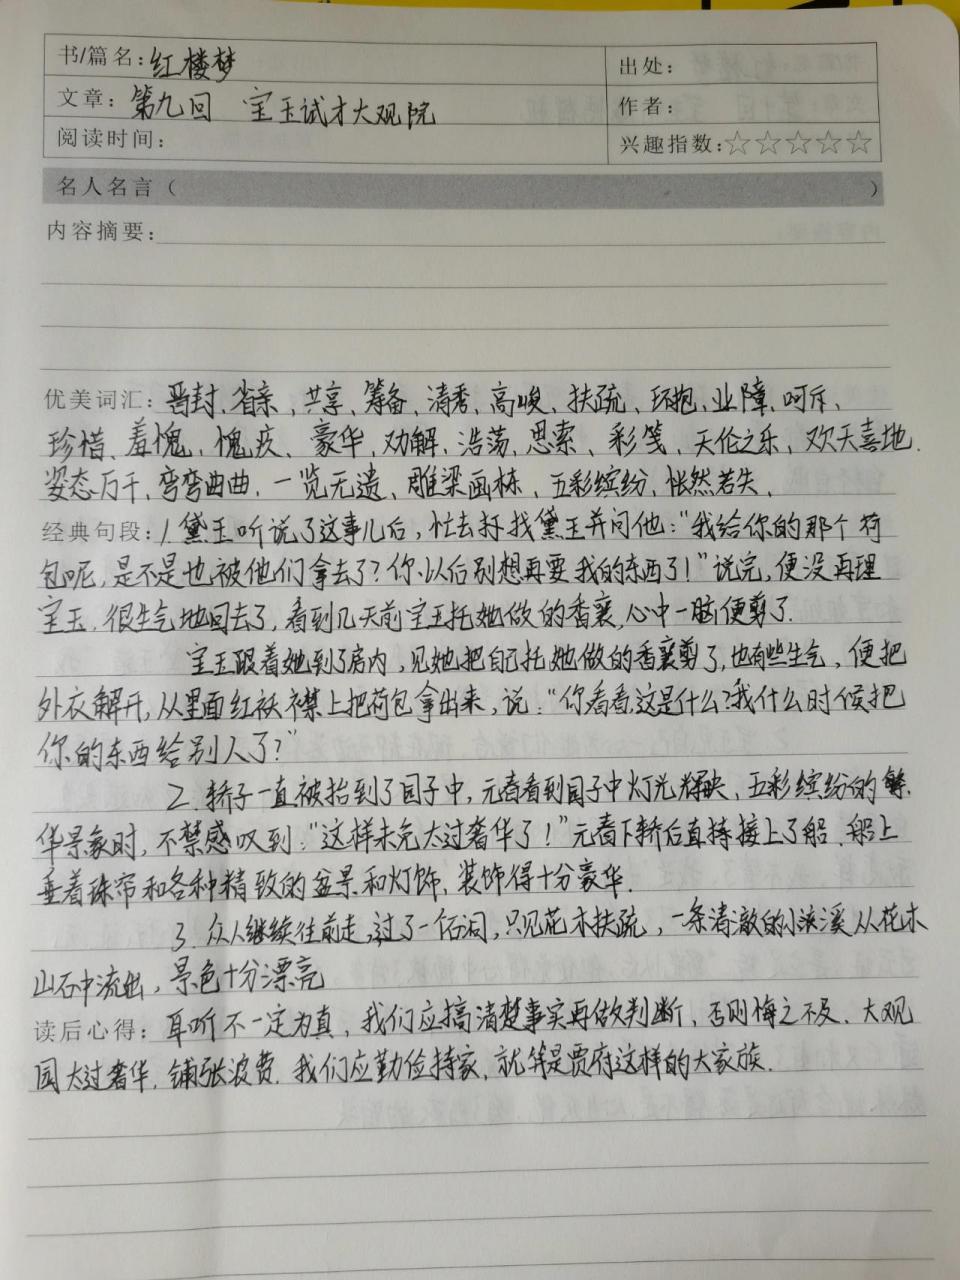 书/篇名：红楼梦 出处：
文章：第九回 宝玉试才大观院 作者：
阅读时间： 兴趣指数：☆☆☆☆☆
名人名言（ ）
内容摘要：
优美词汇：晋封、省亲、共享、筹备、清秀、高峻、扶疏、环抱、业障、呵斥、
珍惜、羞愧、愧疚、豪华、劝解、浩荡、思索、彩笺、天伦之乐、欢天喜地、
姿态万千、弯弯曲曲、一览无遗、雕梁画栋、五彩缤纷、怅然若失、
经典句段：1.黛玉听说了这事儿后，忙去找黛玉并问他：“我给你的那个荷
包呢，是不是也被他们拿去了？你以后别想再要我的东西了！”说完，便没再理
宝玉，很生气地回去了，看到几天前宝玉托她做的香囊，心中一恼便剪了.
宝玉跟着她到了房内，见她把自己托她做的香囊剪了，也有些生气，便把
外衣解开，从里面红袄襟上把荷包拿出来，说：“你看看，这是什么？我什么时候把
你的东西给别人了？”
2.轿子一直被抬到了园子中，元春看到园子中灯光辉映、五彩缤纷的繁
华景象时，不禁感叹到：“这样未免太过奢华了！”元春下轿后直接上了船，船上
垂着珠帘和各种精致的盆景和灯饰，装饰得十分豪华.
3.众人继续往前走，过了一石洞，只见花木扶疏，一条清澈的小溪从花木
山石中流出，景色十分漂亮
读后心得：耳听不一定为真，我们应搞清楚事实再做判断，否则悔之不及、大观
园太过奢华，铺张浪费.我们应勤俭持家，就算是贾府这样的大家族.